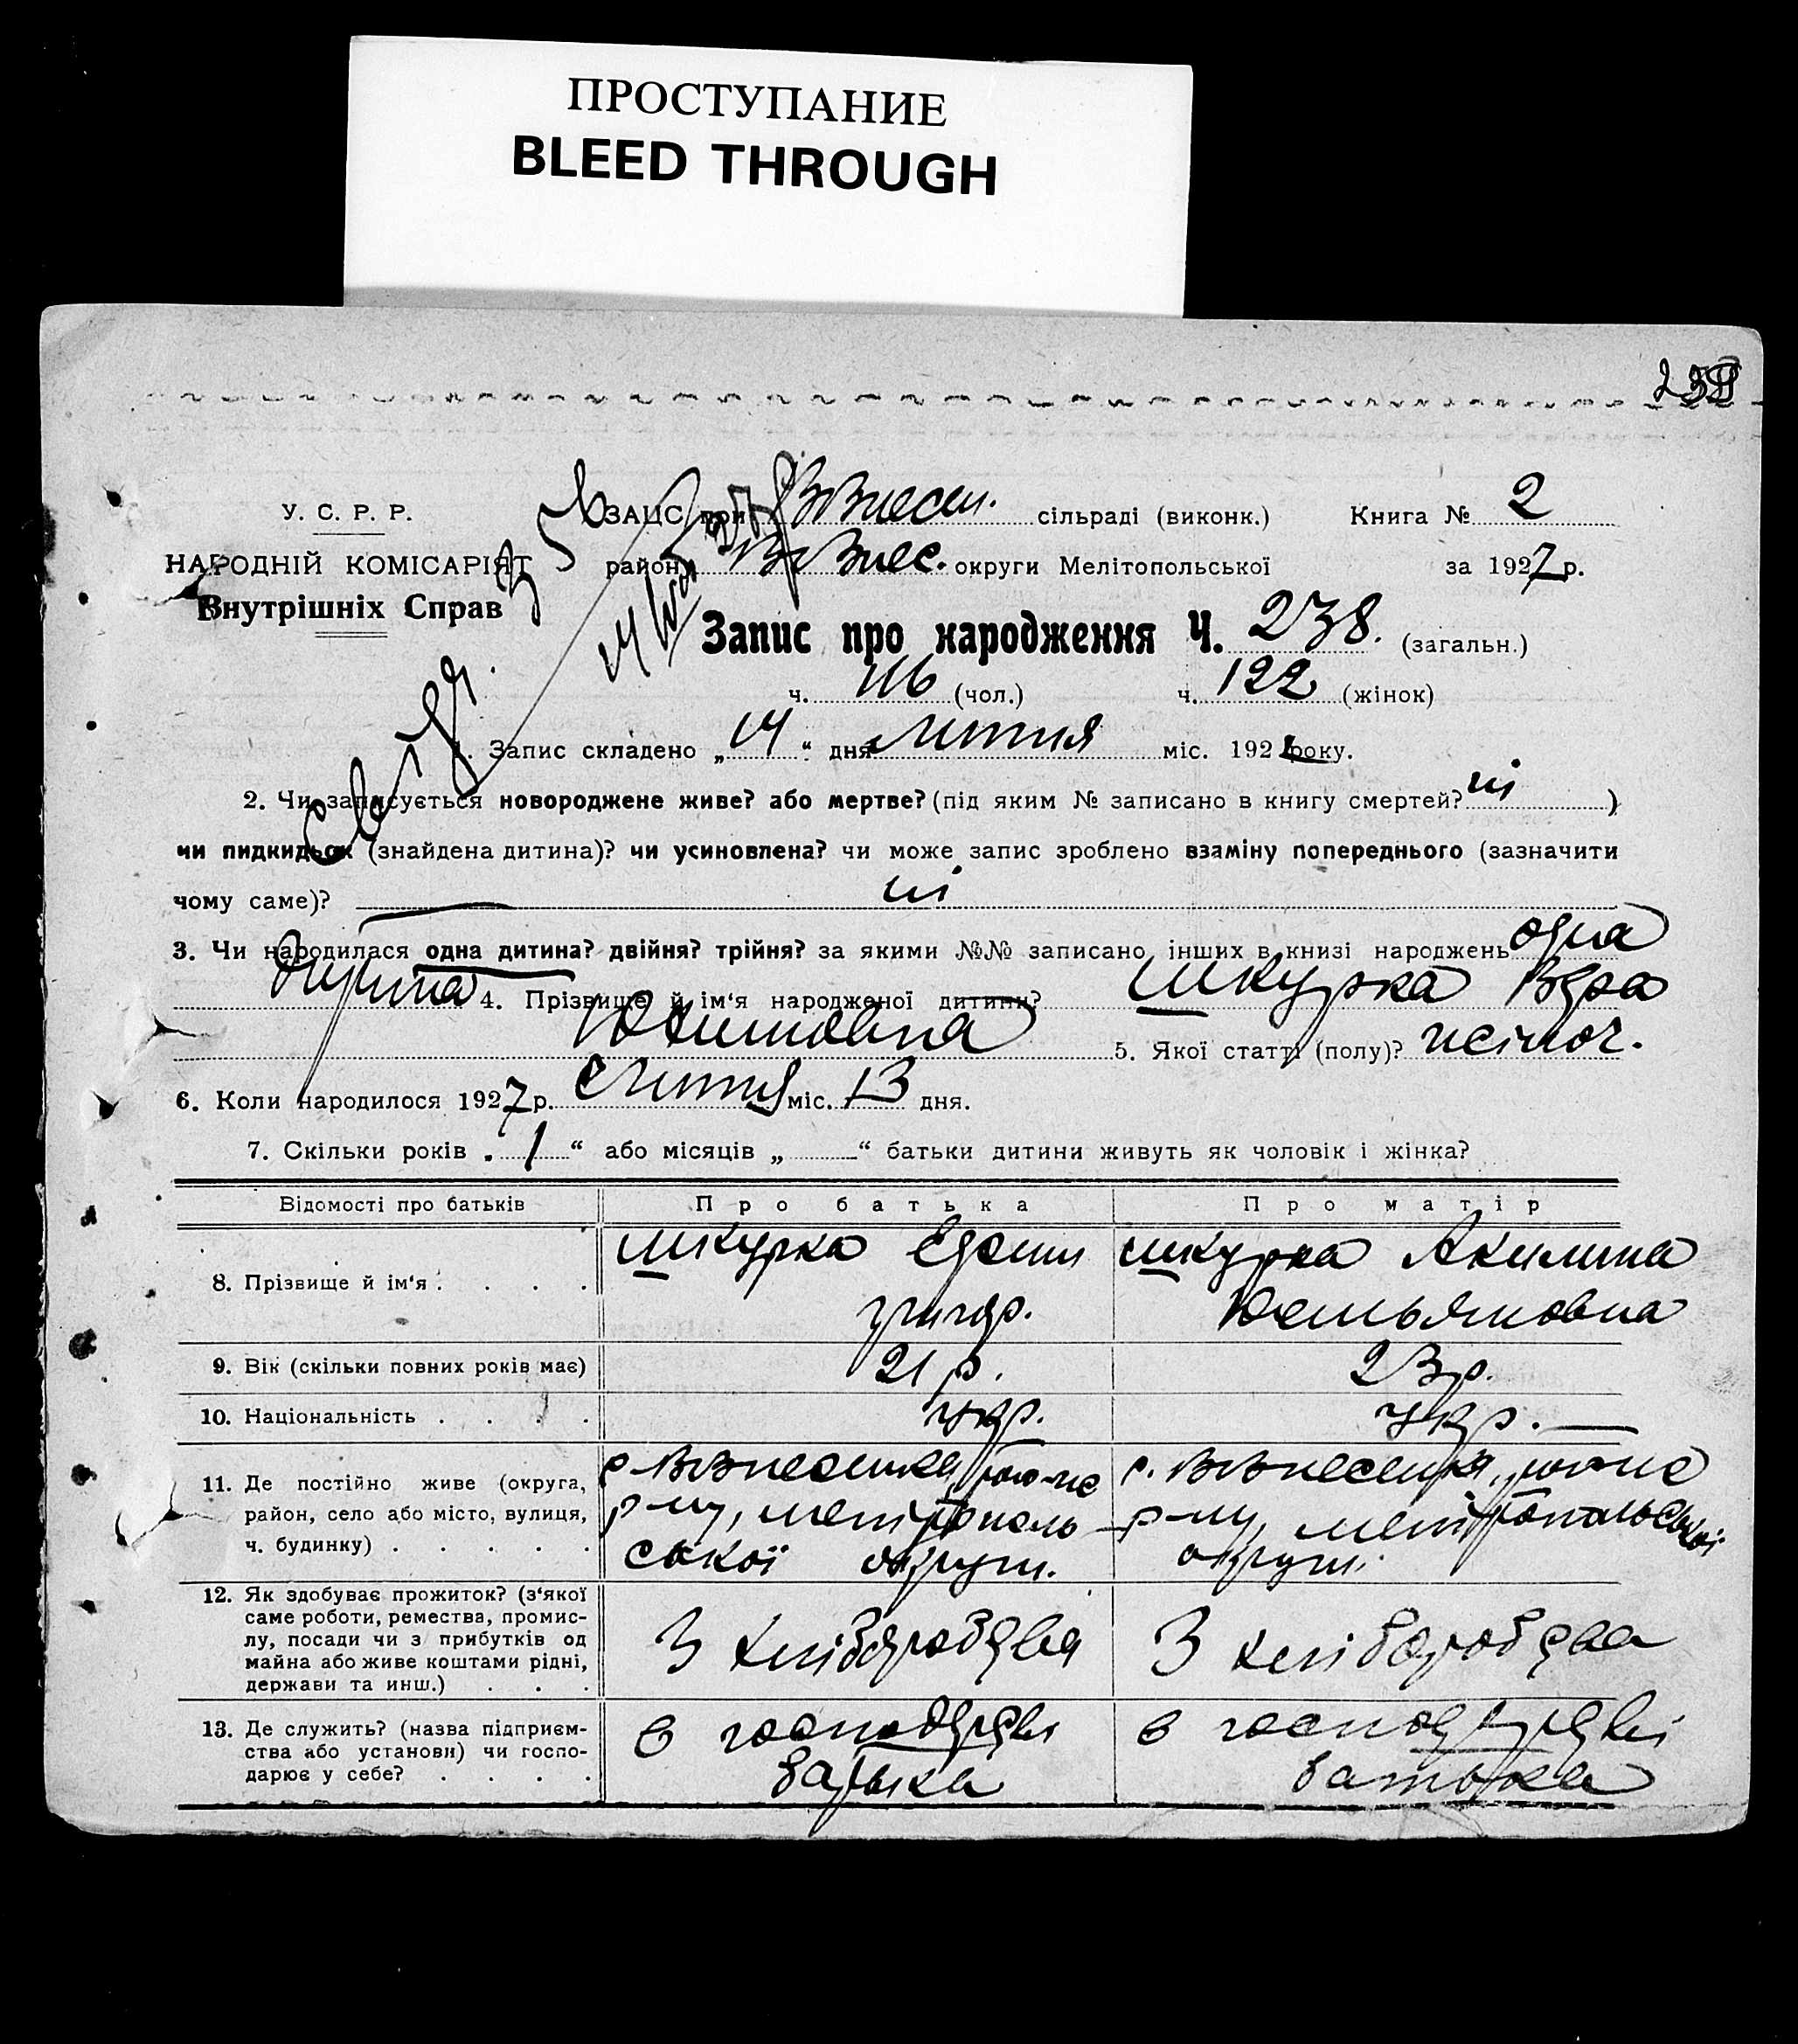 ПРОСТУПАНИЕ
BLEED THROUGH
У. С. Р. Р.
ЗАЦС при сільраді (виконк.) Книга № 2
НАРОДНІЙ КОМІСАРІЯТ
район округи Мелітопольської за 1927 р.
Внутрішніх Справ
Запис про народження Ч. 238. (загальн.)
ч. 116 (чол.) ч. 122 (жінок)
1. Запис складено „14“ дня липня міс. 192 року.
2. Чи записується новороджене живе? або мертве? (під яким № записано в книгу смертей? ні )
чи пидкидьок (знайдена дитина)? чи усиновлена? чи може запис зроблено взаміну попереднього (зазначити
чому саме)? ні
3. Чи народилася одна дитина? двійня? трійня? за якими №№ записано інших в книзі народжень одна
дитина 4. Прізвище й ім'я народженої дитини? Шкурка Вера
5. Якої статті (полу)? жіноч.
6. Коли народилося 1927 р. Липня міс. 13 дня.
7. Скільки років „1“ або місяців „ “ батьки дитини живуть як чоловік і жінка?
Відомості про батьків Про батька Про матір
8. Прізвище й ім'я . . . . Шкурка Шкурка Акилина
григор.
9. Вік (скільки повних років має) 21 р. 23 р.
10. Національність . . . . укр. укр.
11. Де постійно живе (округа,
район, село або місто, вулиця,
ч. будинку) . . . . .
р-ну, мелітополь-
ської округи.
р-ну, мелітопольської
округи.
12. Як здобуває прожиток? (з'якої
саме роботи, ремества, промис-
лу, посади чи з прибутків од
майна або живе коштами рідні,
держави та инш.) . . .
З хліборобства З хліборобства
13. Де служить? (назва підприєм-
ства або установи) чи госпо-
дарює у себе? . . . .
в господарстві
батька
в господарстві
батька